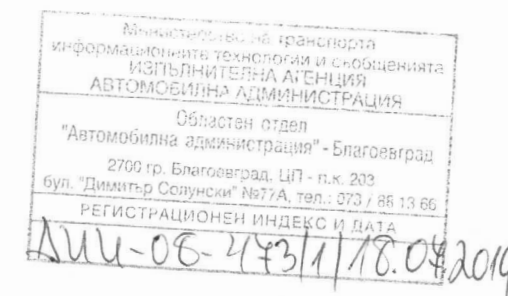 Министерство на транспорта
информационните технологии и съобщенията
ИЗПЪЛНИТЕЛНА АГЕНЦИЯ
АВТОМОБИЛНА АДМИНИСТРАЦИЯ
Областен отдел
"Автомобилна администрация" - Благоевград
2700 гр. Благоевград, ЦП - п.к. 203
бул. "Димитър Солунски" №77А, тел.: 073 / 88 13 66
РЕГИСТРАЦИОНЕН ИНДЕКС И ДАТА
-08-473/1/18.07.2019